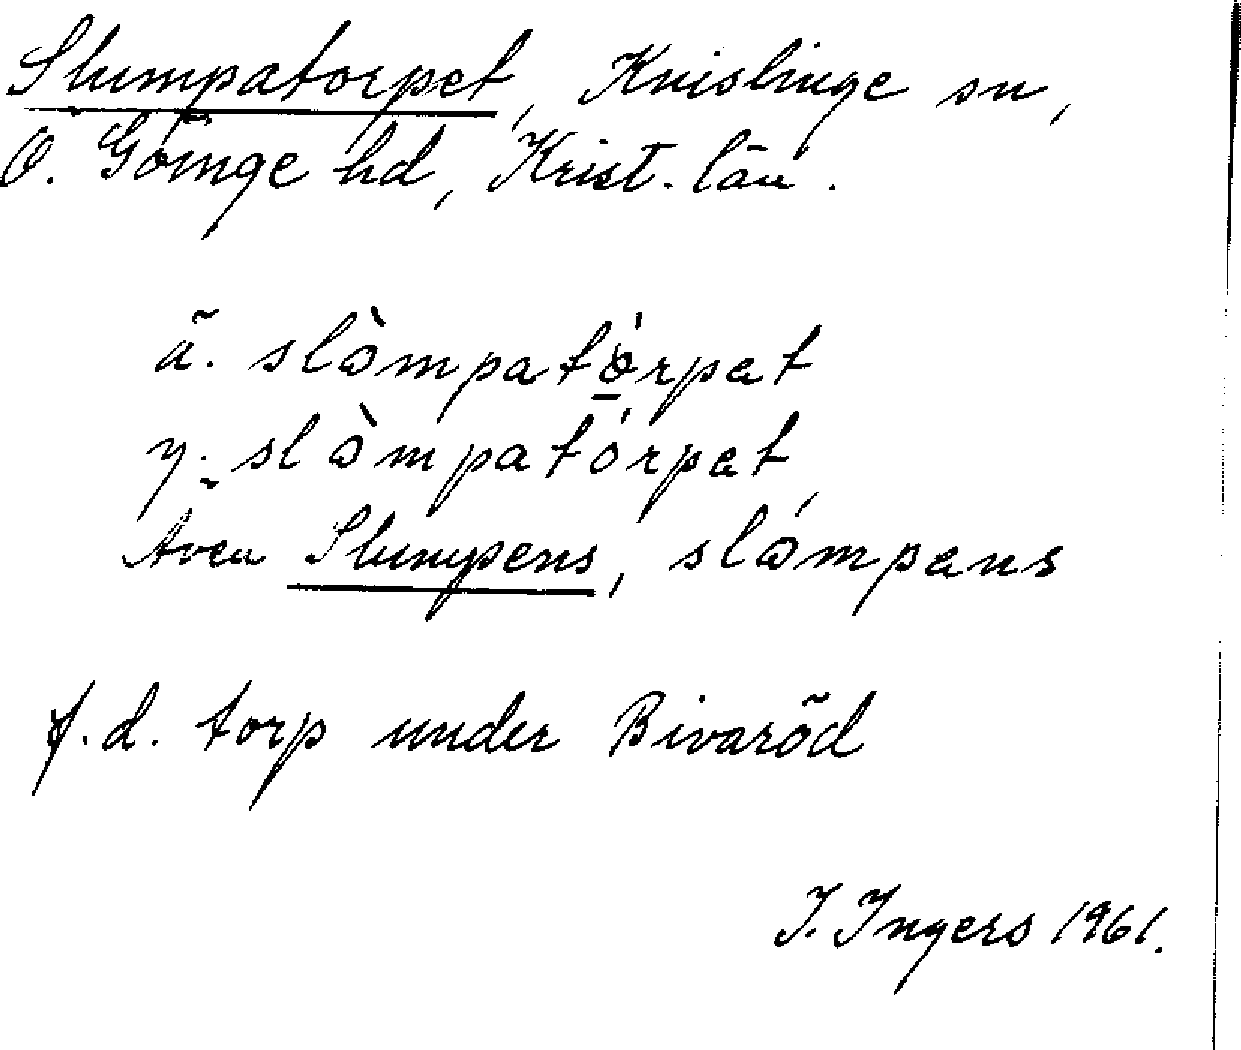 Slumpatorpet, Knislinge sn,
Ö. Göinge hd, Krist. län.
ä. slòmpatórpat
y. slòmpatórpat
Även Slumpens, slómpans
f.d. torp under Bivaröd
I. Ingers 1961.